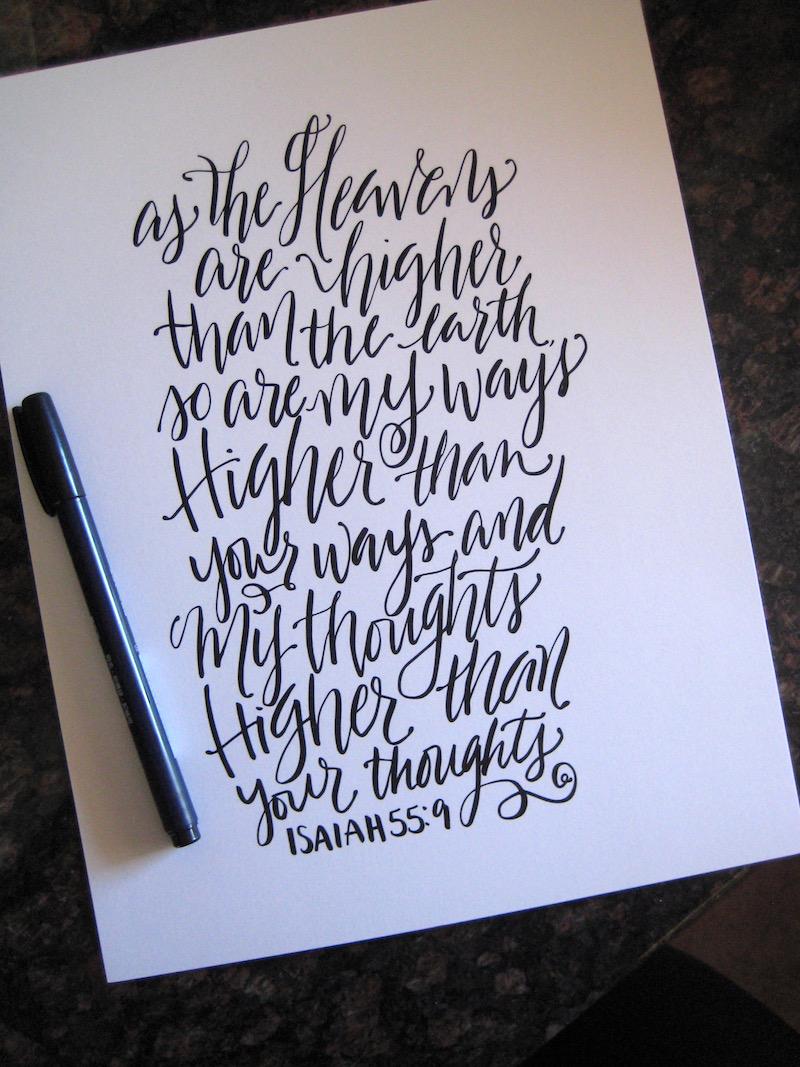 as the Heavens
are higher
than the earth,
so are my ways
Higher than
your ways and
My thoughts
Higher than
your thoughts
ISAIAH 55:9